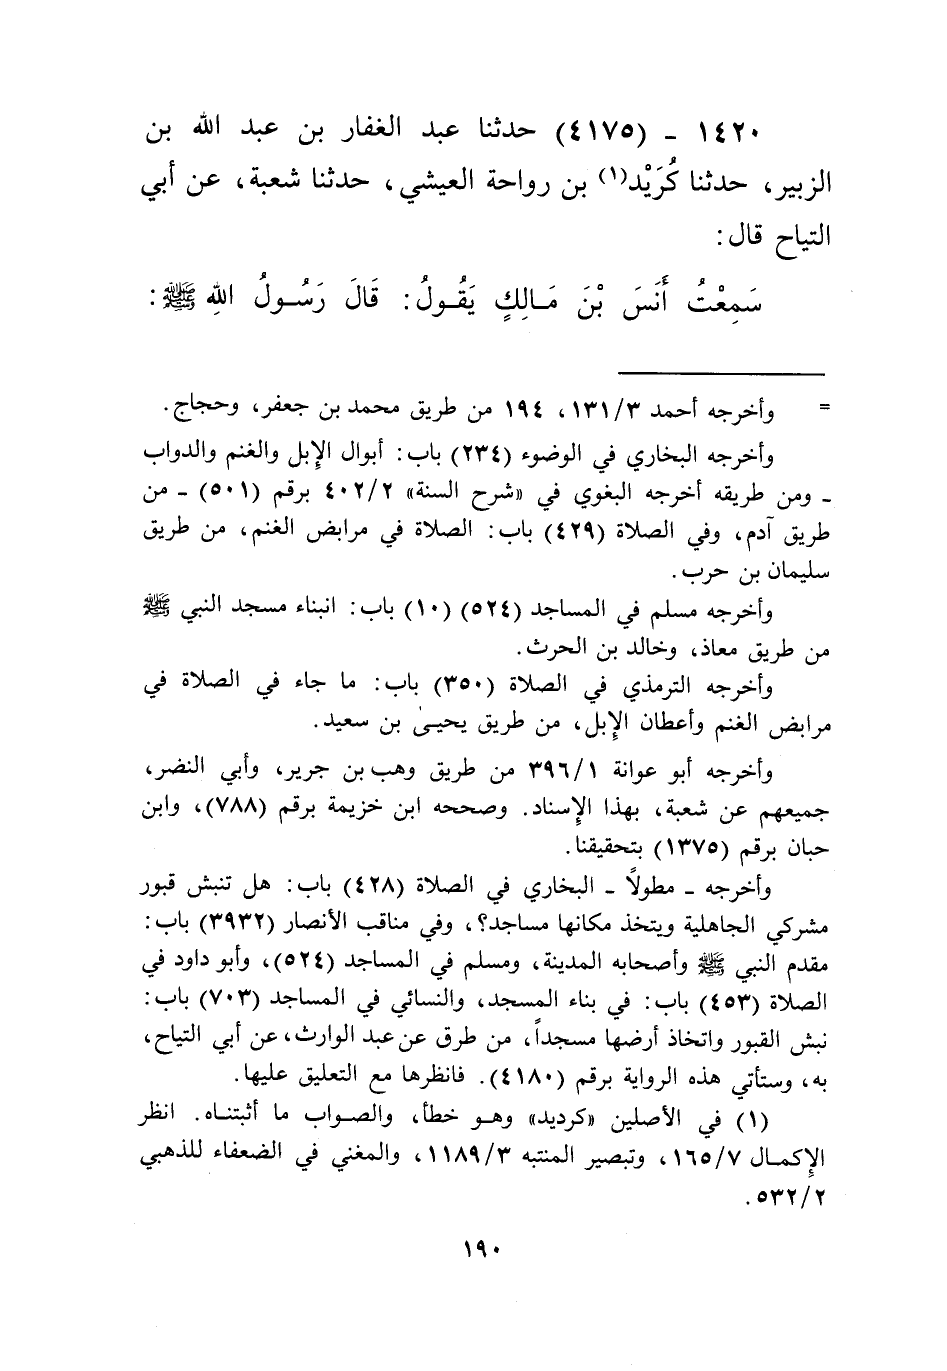 ١٤٢٠ - (٤١٧٥) حدثنا عبد الغفار بن عبد الله بن
الزبير، حدثنا كُرَيْد(١) بن رواحة العيشي، حدثنا شعبة، عن أبي
التياح قال:
سَمِعْتُ أَنَسَ بْنَ مَالِكٍ يَقُولُ: قَالَ رَسُولُ اللهِ ﷺ:
= وأخرجه أحمد ١٣١/٣، ١٩٤ من طريق محمد بن جعفر، وحجاج.
وأخرجه البخاري في الوضوء (٢٣٤) باب: أبوال الإبل والغنم والدواب
- ومن طريقه أخرجه البغوي في «شرح السنة» ٤٠٢/٢ برقم (٥٠١) - من
طريق آدم، وفي الصلاة (٤٢٩) باب: الصلاة في مرابض الغنم، من طريق
سليمان بن حرب.
وأخرجه مسلم في المساجد (٥٢٤) (١٠) باب: انبناء مسجد النبي ﷺ
من طريق معاذ، وخالد بن الحرث.
وأخرجه الترمذي في الصلاة (٣٥٠) باب: ما جاء في الصلاة في
مرابض الغنم وأعطان الإبل، من طريق يحيىٰ بن سعيد.
وأخرجه أبو عوانة ٣٩٦/١ من طريق وهب بن جرير، وأبي النضر،
جميعهم عن شعبة، بهذا الإسناد. وصححه ابن خزيمة برقم (٧٨٨)، وابن
حبان برقم (١٣٧٥) بتحقيقنا.
وأخرجه - مطولاً - البخاري في الصلاة (٤٢٨) باب: هل تنبش قبور
مشركي الجاهلية ويتخذ مكانها مساجد؟، وفي مناقب الأنصار (٣٩٣٢) باب:
مقدم النبي ﷺ وأصحابه المدينة، ومسلم في المساجد (٥٢٤)، وأبو داود في
الصلاة (٤٥٣) باب: في بناء المسجد، والنسائي في المساجد (٧٠٣) باب:
نبش القبور واتخاذ أرضها مسجداً، من طرق عن عبد الوارث، عن أبي التياح،
به، وستأتي هذه الرواية برقم (٤١٨٠). فانظرها مع التعليق عليها.
(١) في الأصلين «كرديد» وهو خطأ، والصواب ما أثبتناه. انظر
الإكمال ١٦٥/٧، وتبصير المنتبه ١١٨٩/٣، والمغني في الضعفاء للذهبي
٥٣٢/٢.
١٩٠